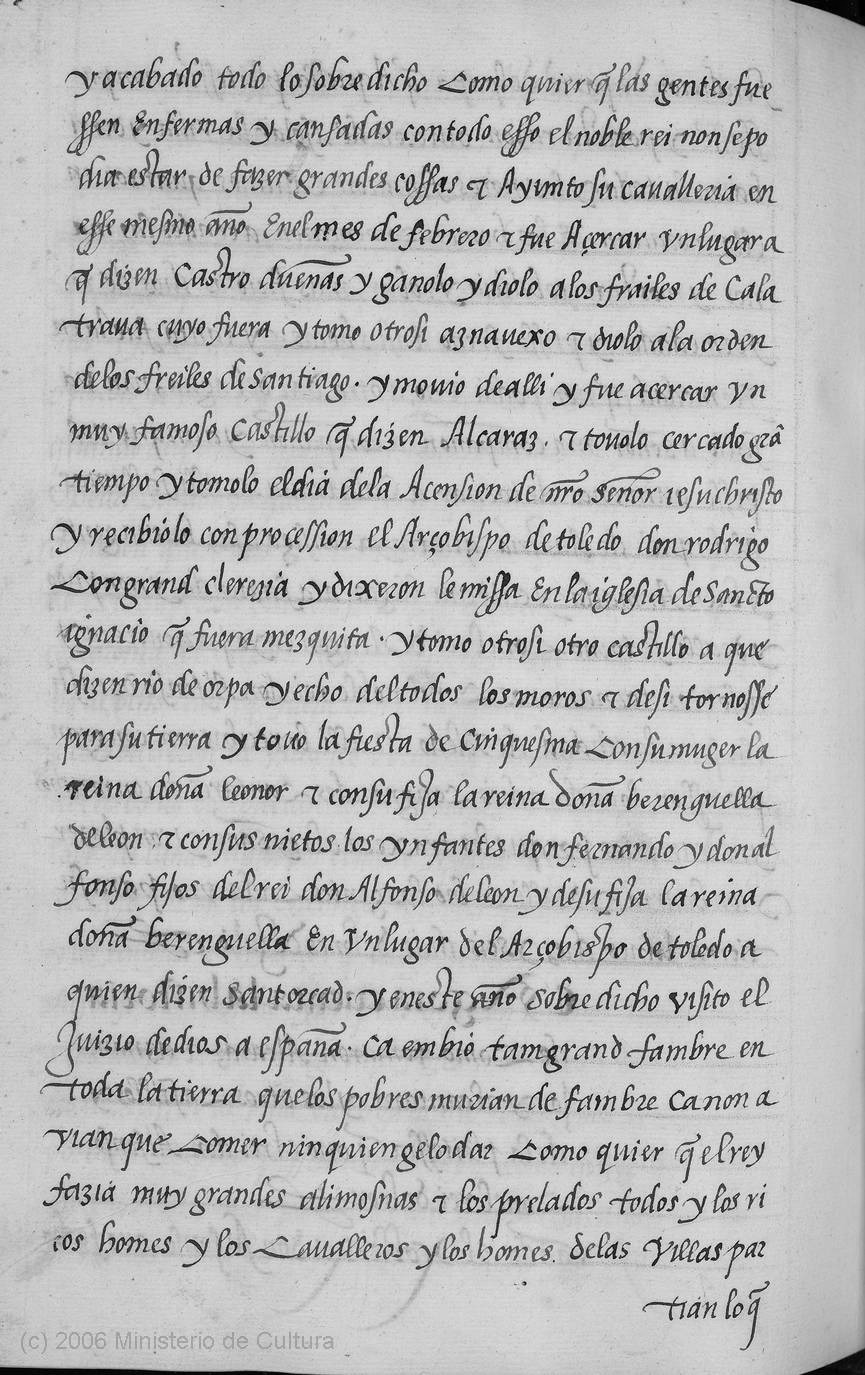 y acabado todo lo sobre dicho Como quier q̃ las gentes fue
ssen Enfermas y cansadas contodo esso el noble rei non se po
dia estar de fazer grandes cossas τ Ayunto su cavalleria en
esse mesmo año Enel mes de febrero τ fue Açercar Vn lugar a
q̃ dizen Castro dueñas y ganolo y diolo alos frailes de Cala
traua cuyo fuera y tomo otrosi aznauexo τ diolo ala orden
delos freiles de Santiago. y movio de alli y fue acercar Vn
muy famoso Castillo q̃ dizen Alcaraz. τ touolo cercado grã
tiempo y tomolo el dia dela Acension de nr̃o Señor iesuchristo
y recibiolo con procession el Arçobispo de toledo don rodrigo
Con grand clerezia y dixeron le missa En la iglesia de Sancto
ignacio q̃ fuera mezquita. y tomo otrosi otro castillo a que
dizen rio de orpa y echo del todos los moros τ desi tornosse
para su tierra y touo la fiesta de Cinquesma Con su muger la
reina doña leonor τ con su fija la reina doña berenguella
de leon τ con sus nietos los ynfantes don fernando y don al
fonso fijos del rei don Alfonso de leon y de su fija la reina
doña berenguella En Vn lugar del Arçobispo de toledo a
quien dizen Santorcad. y en este año sobre dicho visito el
Juizio de dios a españa. ca embio tam grand fambre en
toda la tierra que los pobres murian de fambre ca non a
vian que Comer nin quien gelo dar Como quier q̃ el rey
fazia muy grandes alimosnas τ los prelados todos y los ri
cos homes y los Cavalleros y los homes. delas Villas par
tian lo q̃
(c) 2006 Ministerio de Cultura